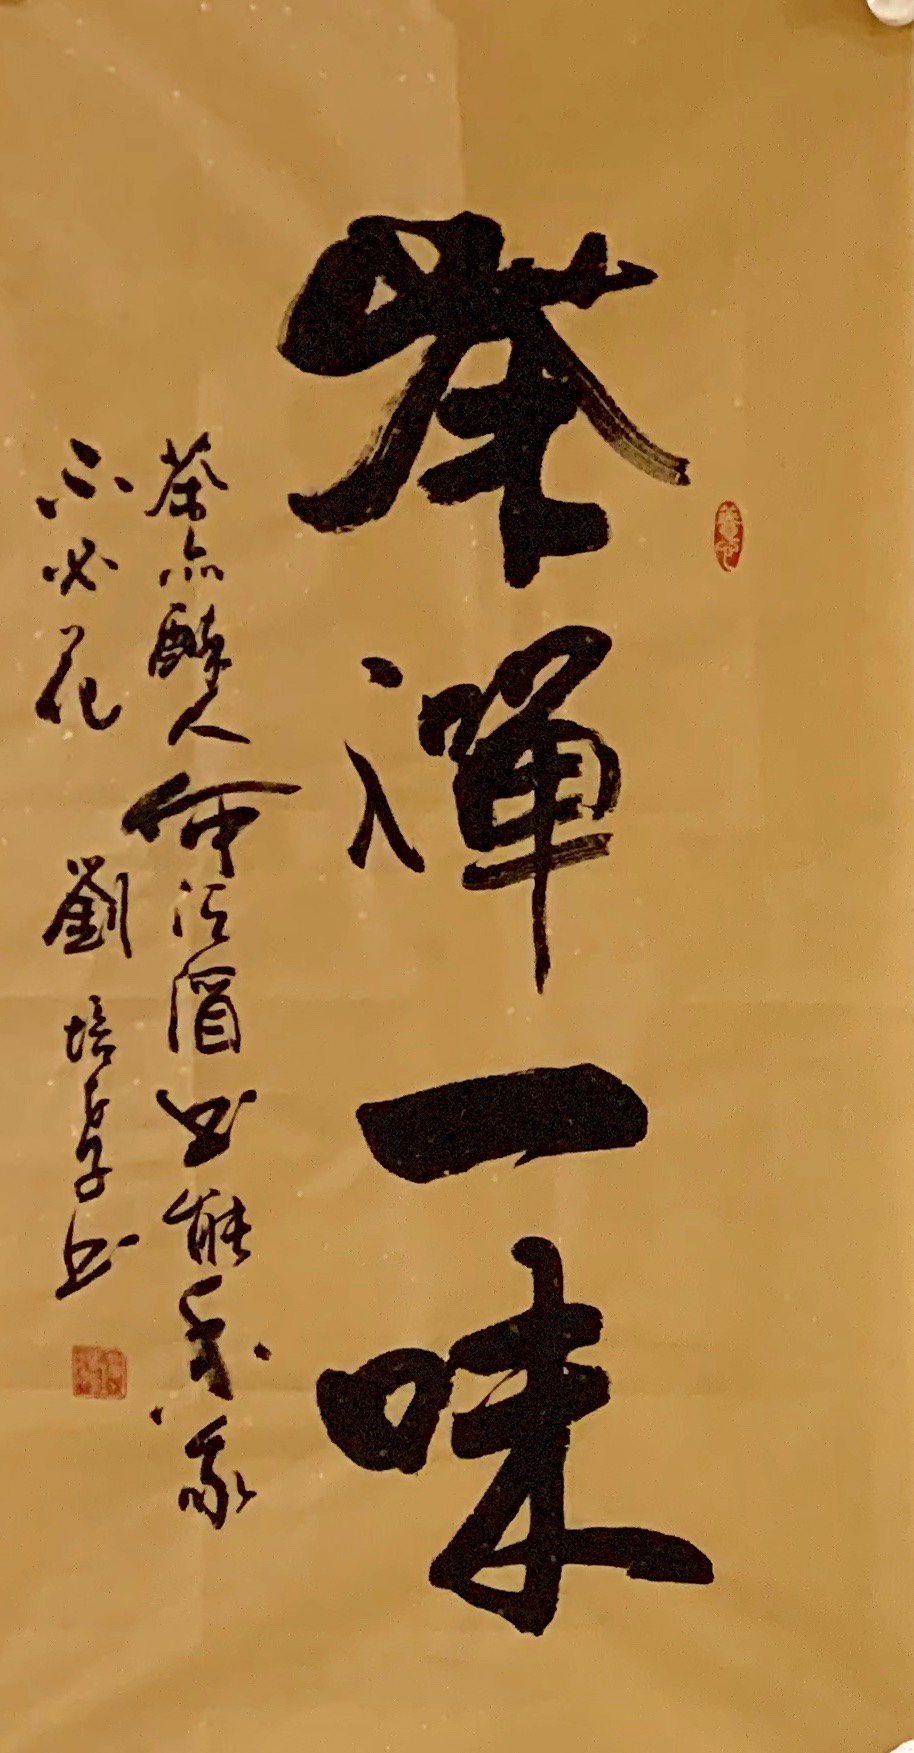 茶禪一味
茶亦醉人何須酒书能香我
不必花
劉培书